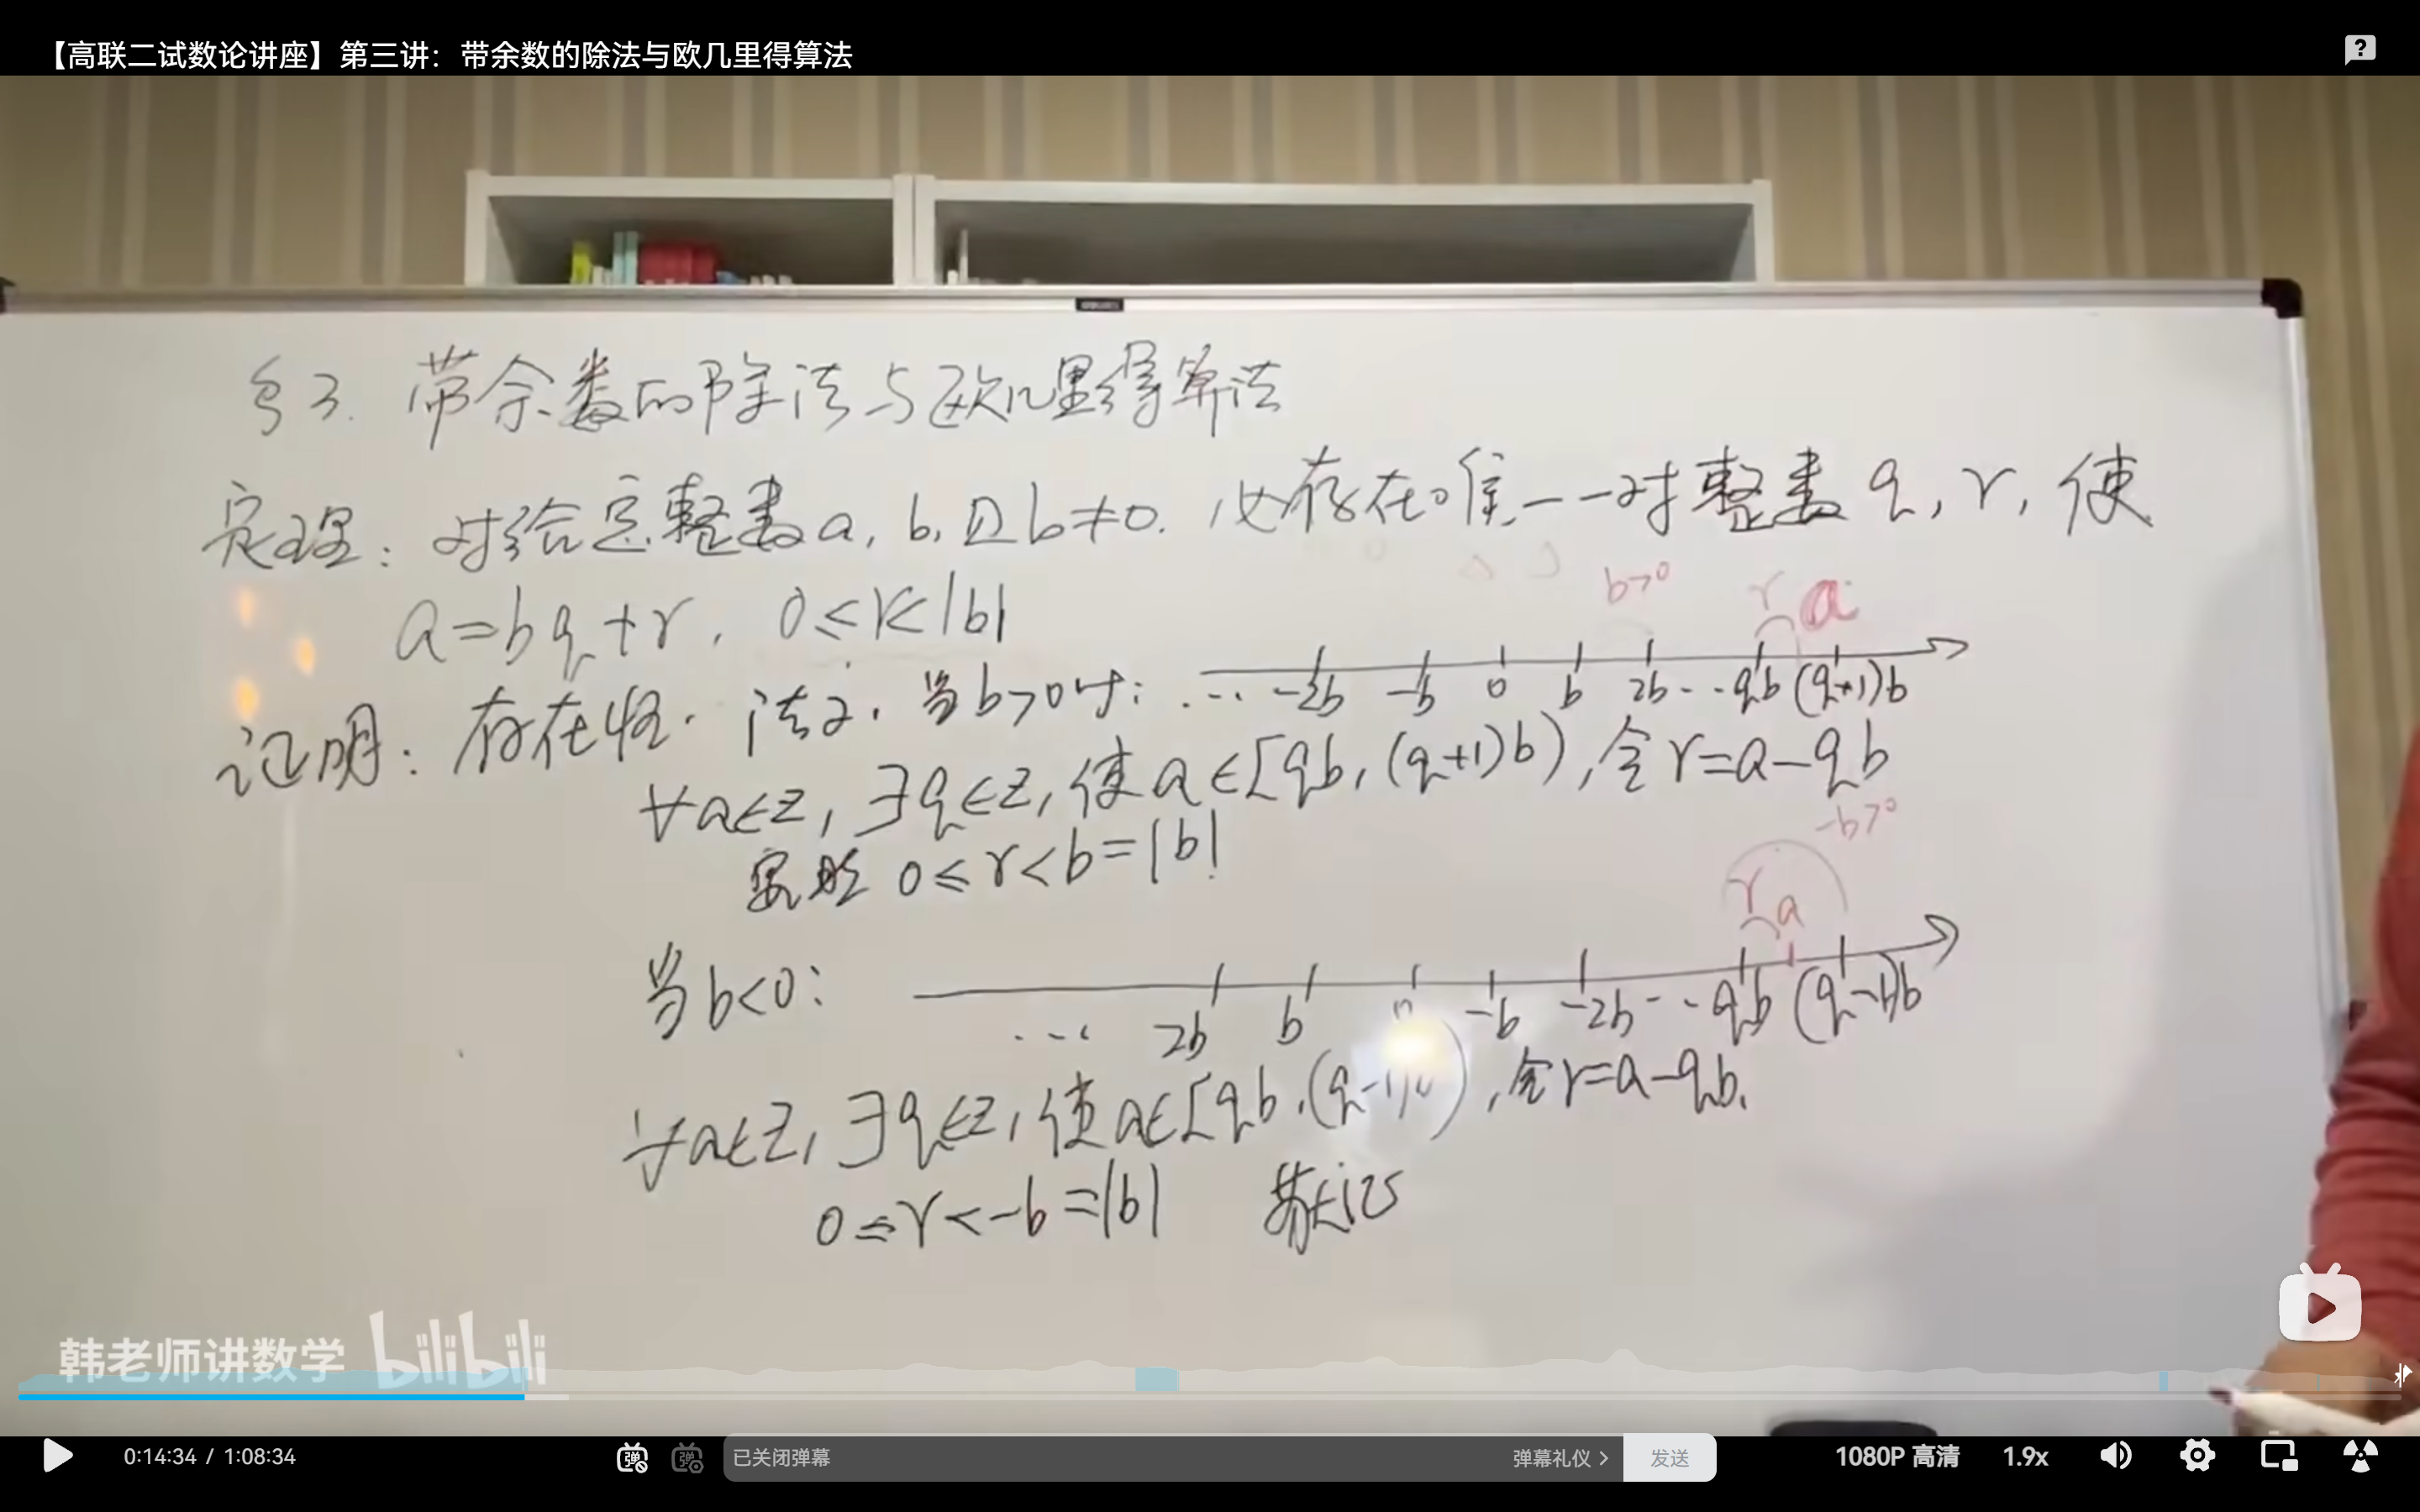 【高联二试数论讲座】第三讲：带余数的除法与欧几里得算法
§3. 带余数的除法与欧几里得算法
定理：对给定整数a, b, 且b≠0. 必存在唯一一对整数q, r, 使
a=bq+r, 0≤r<|b|
b>0 r a
证明：存在性. 法2. 当b>0时: ... -2b -b 0 b 2b ... qb (q+1)b
∀a∈Z, ∃q∈Z, 使a∈[qb, (q+1)b), 令r=a-qb
-b>0
0≤r<b=|b|
r a
当b<0: ... 2b b 0 -b -2b ... qb (q-1)b
∀a∈Z, ∃q∈Z, 使a∈[qb, (q-1)b), 令r=a-qb.
0≤r<-b=|b|
韩老师讲数学 bilibili
0:14:34 / 1:08:34 弹 弹 已关闭弹幕 弹幕礼仪 > 发送 1080P 高清 1.9x